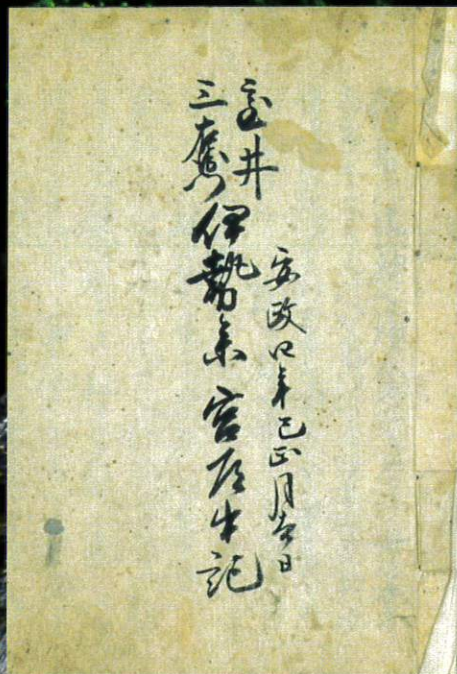 安政四年巳正月吉日
室井
三奮伊勢参宮道中記